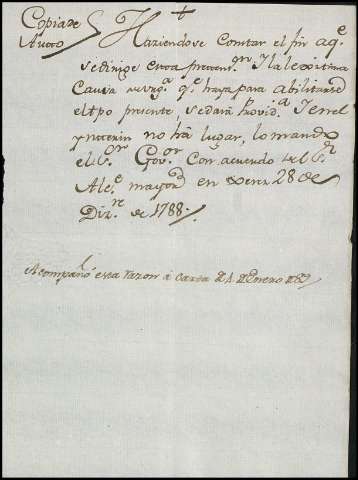 Copia de Aucto
Haziendose Constar el fin aqe.
se dirige esta pretenon. Y la lexitima
Causa qe. haya para abilitarse
el tpo presente, se dará Provida. Y en el
ynterin no há lugar, lo mandó
el Sr. Govor. Con acuerdo del Sr.
Alce. mayor en 28 de
Dizre. de 1788.
Acompañó esta razon á Carta de 1 de Enero de 89